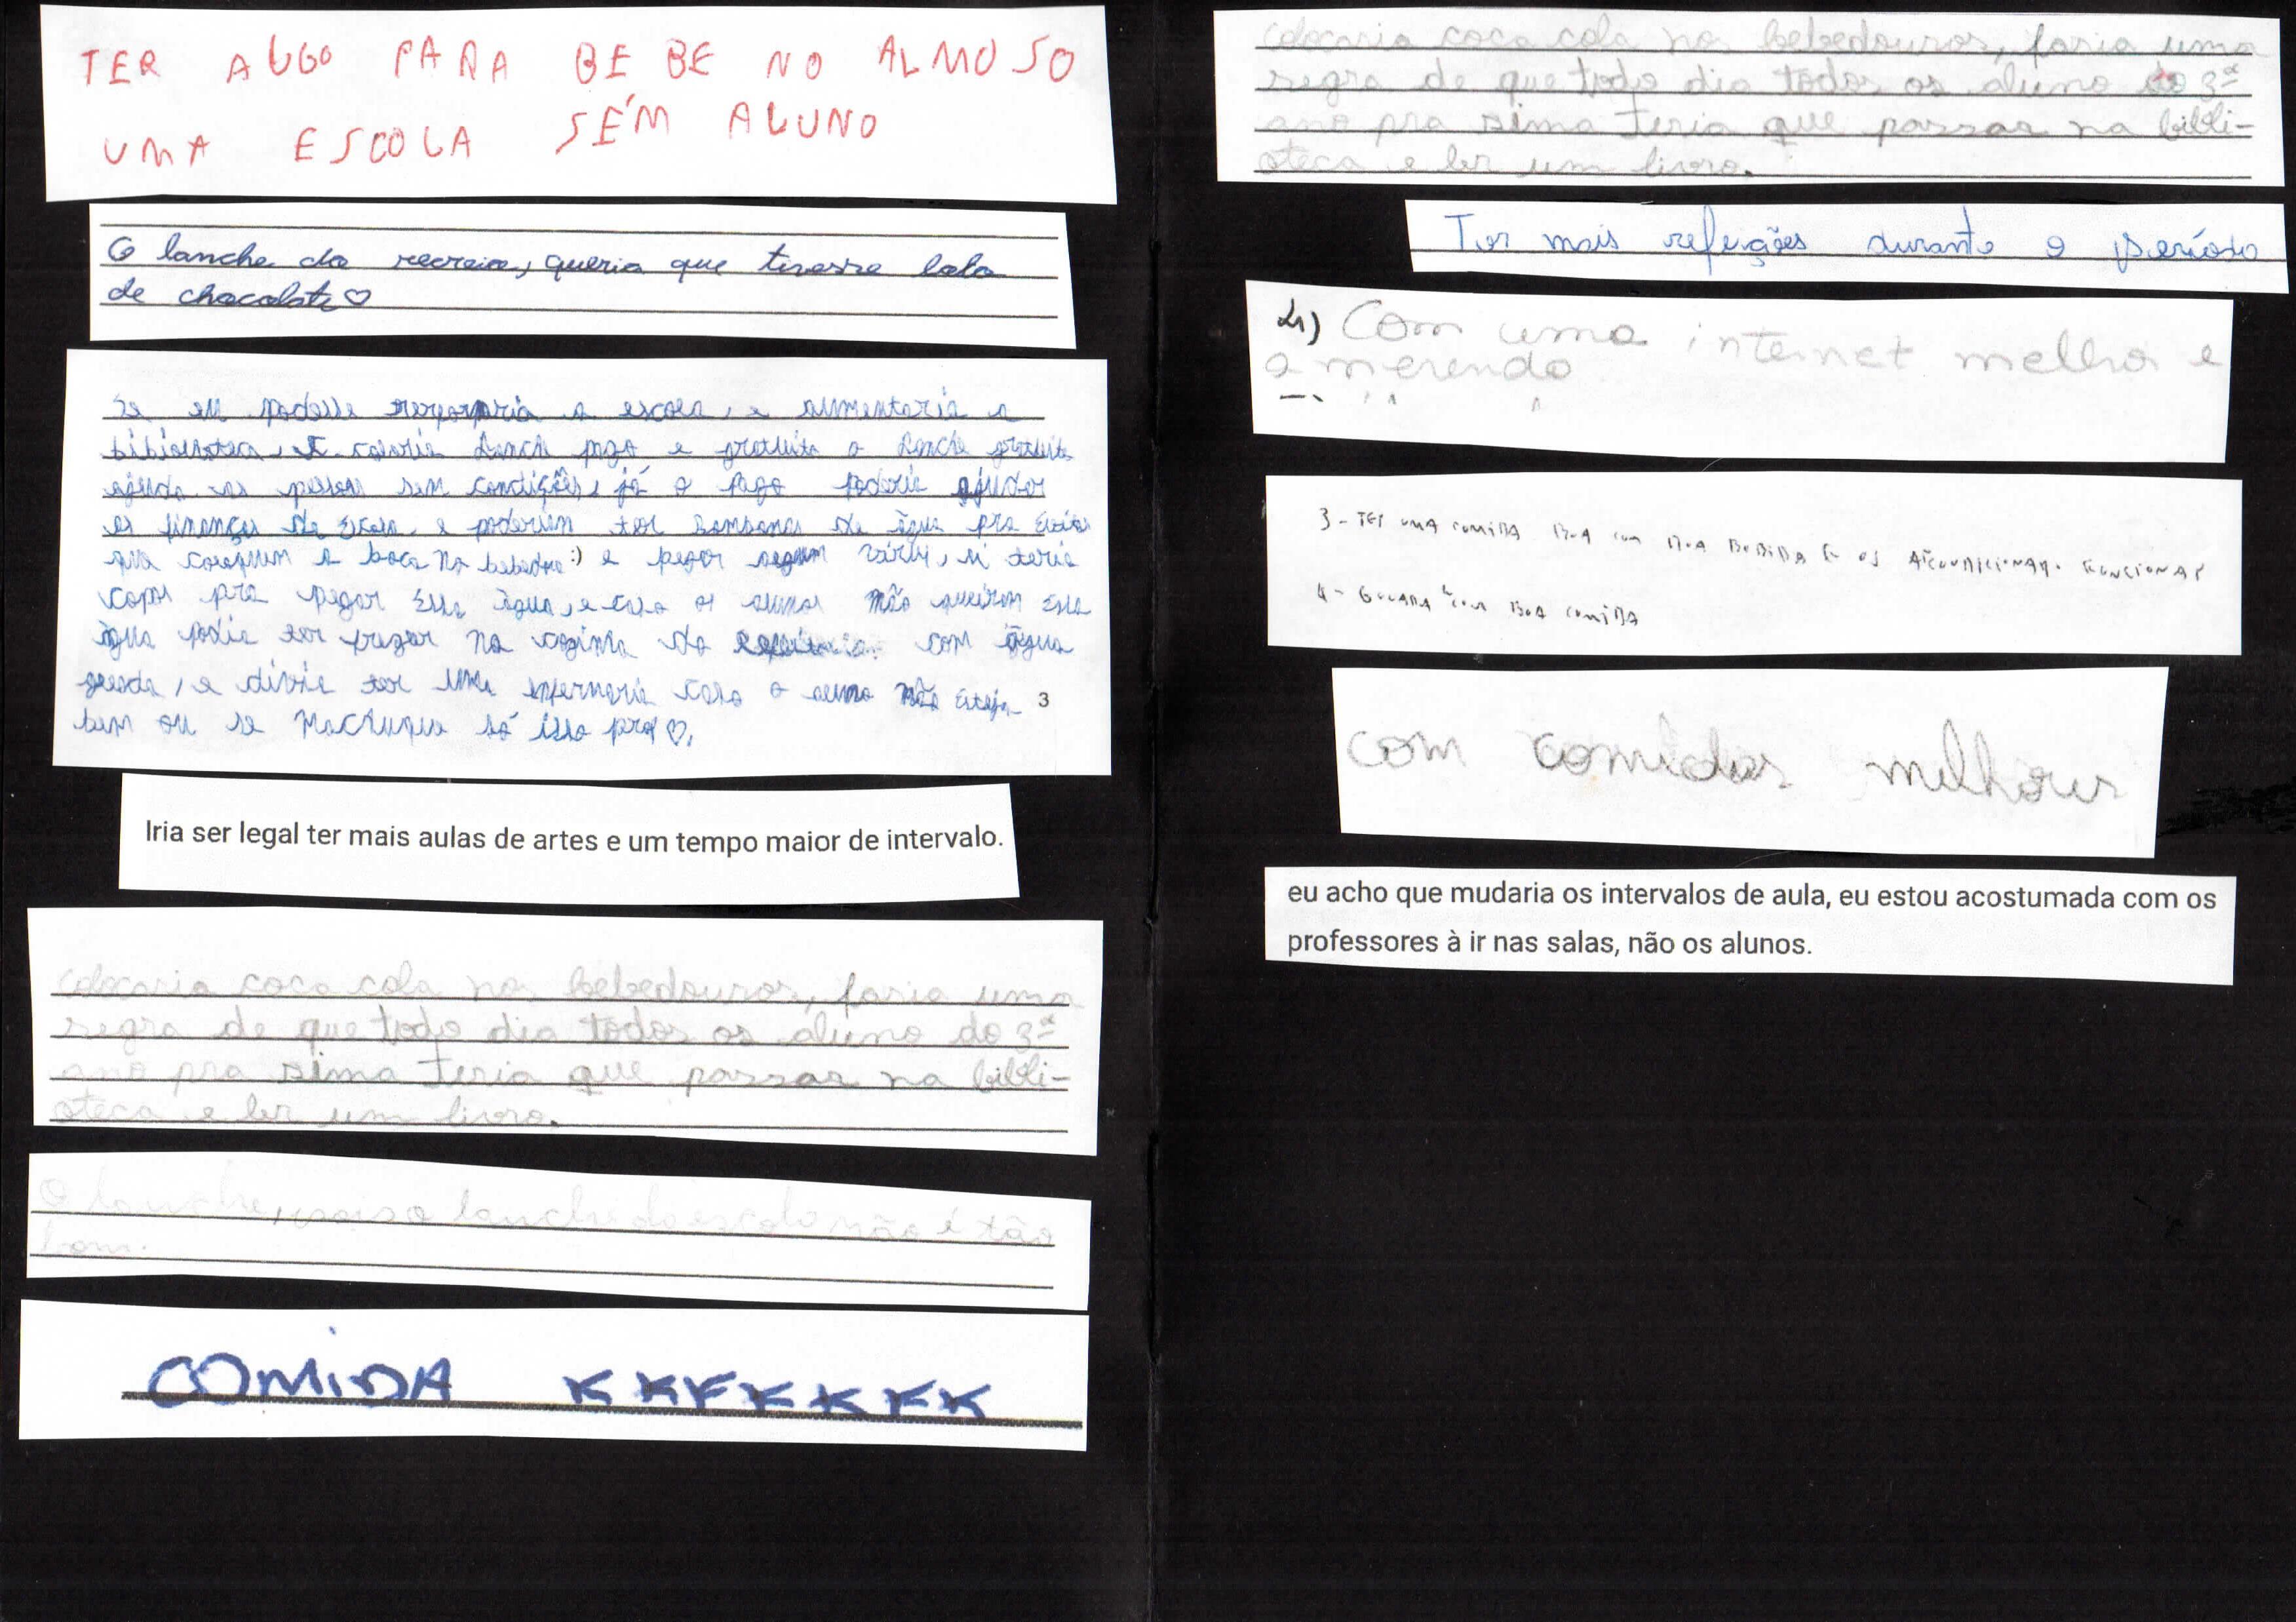 TER ALGO PARA BEBE NO ALMOSO
UMA ESCOLA SÉM ALUNO
O lanche do recreio, queria que tivesse bolo
de chocolate ♡
Se eu podesse reformaria a escola, e aumentaria a
e gratuito o lanche gratuito
ajuda as pessoas sem condições, já o pago poderia ajudar
as finanças da escola e poderiam ter de água pra
que coloquem a boca no :) e pegar vírus, e teria
copos pra pegar essa água, e caso os alunos não queiram essa
água podia ter na cozinha do com água
gelada, e divia ter uma enfermaria caso o aluno não esteja 3
bem ou se machuque só isso prof ♡.
Iria ser legal ter mais aulas de artes e um tempo maior de intervalo.
colocaria coca cola nos bebedouros, faria uma
regra de que todo dia todos os aluno do 3º
ano pra sima teria que passar na bibli-
oteca e ler um livro.
O lanche, pois o lanche da escola não é tão
bom.
COMIDA KKKKKKKK
colocaria coca cola nos bebedouros, faria uma
regra de que todo dia todos os aluno do 3º
ano pra sima teria que passar na bibli-
oteca e ler um livro.
Ter mais refeições durante o período
4) Com uma internet melhor e
a merenda
3 - TER UMA COMIDA BOA COM BOA BEBIDA E OS FUNCIONAR
4 - COM BOA COMIDA
com comidas melhores
eu acho que mudaria os intervalos de aula, eu estou acostumada com os
professores à ir nas salas, não os alunos.